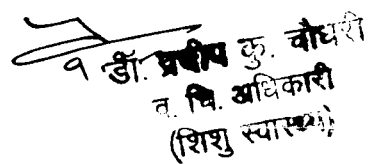 डॉ. प्रदीप कु. चौधरी
व. चि. अधिकारी
(शिशु स्वास्थ्य)